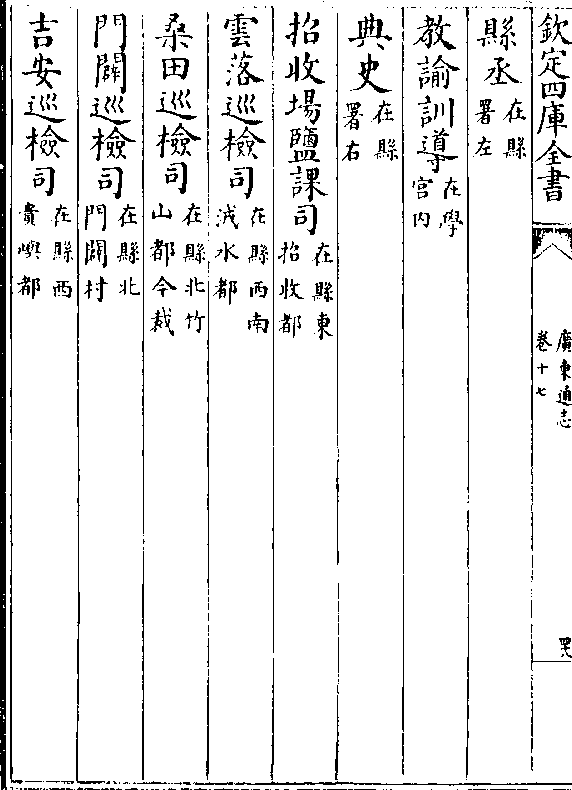 欽定四庫全書
廣東通志
卷十七
縣丞在縣署左
教諭訓導在學宮内
典史在縣署右
招收場鹽課司在縣東招收都
雲落巡檢司在縣西南㳀水都
桑田巡檢司在縣北竹山都今裁
門闢巡檢司在縣北門闢村
吉安巡檢司在縣西貴嶼都